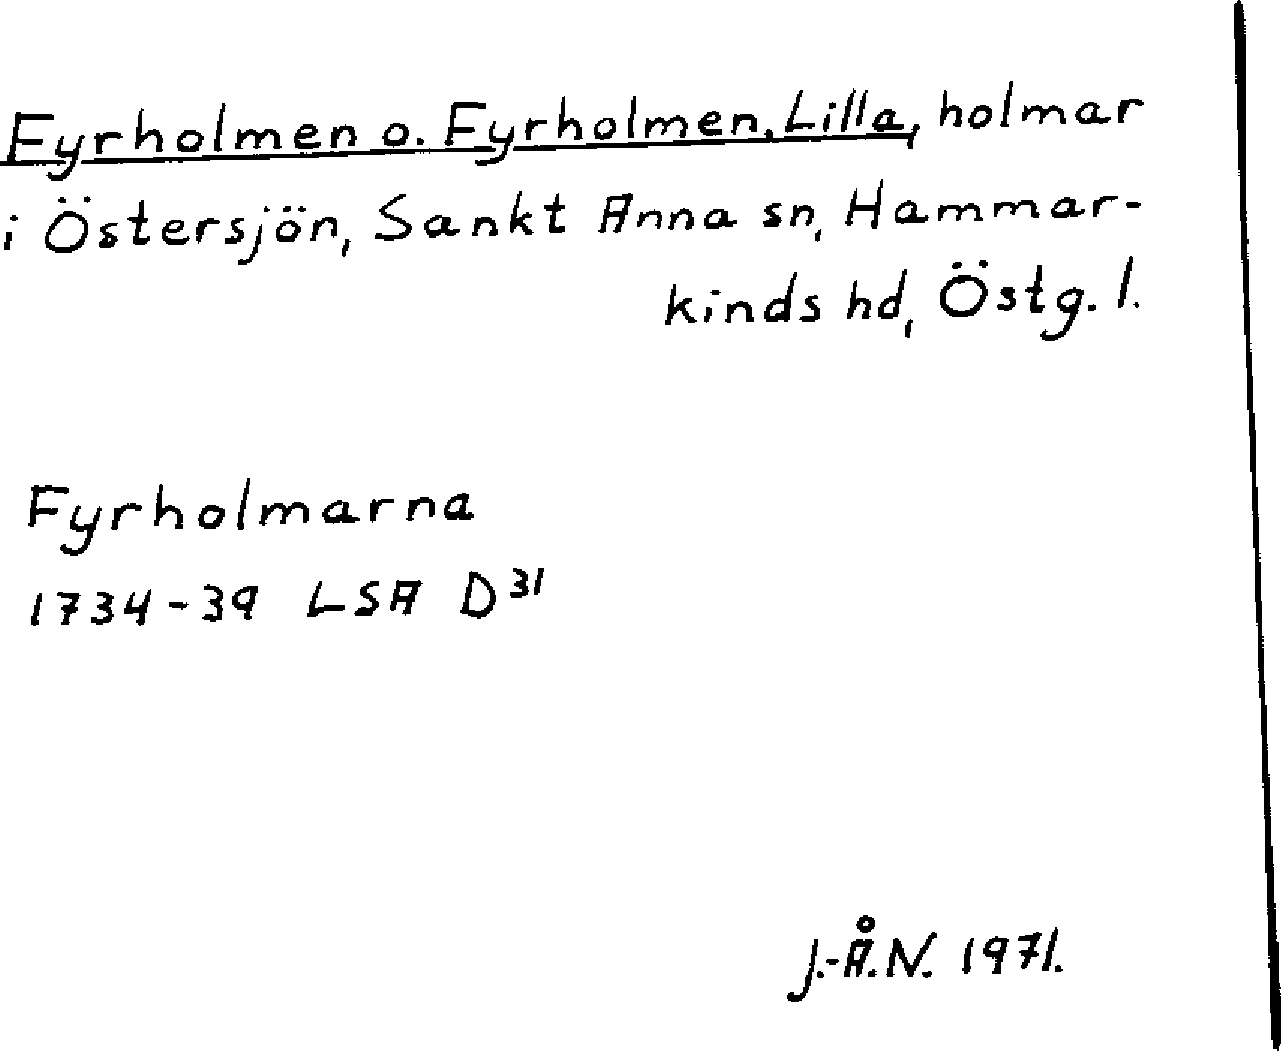 Fyrholmen o. Fyrholmen, Lilla, holmar
i Östersjön, Sankt Anna sn, Hammar-
kinds hd, Östg. l.
Fyrholmarna
1734-39 LSA D³¹
J.-Å.N. 1971.